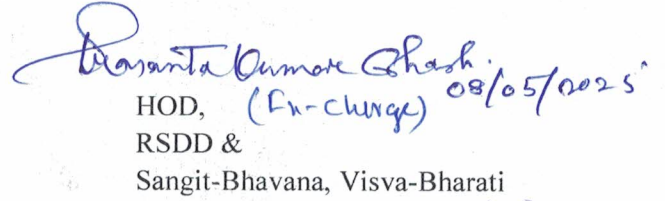 Prasanta Kumar Ghosh.
08/05/2025
HOD, (In-charge)
RSDD &
Sangit-Bhavana, Visva-Bharati